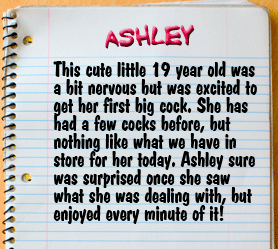 ASHLEY
This cute little 19 year old was
a bit nervous but was excited to
get her first big cock. She has
had a few cocks before, but
nothing like what we have in
store for her today. Ashley sure
was surprised once she saw
what she was dealing with, but
enjoyed every minute of it!